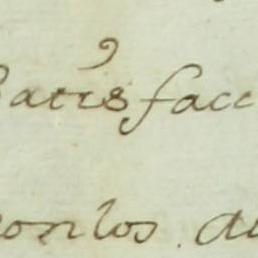 satisfacc
conlos. di